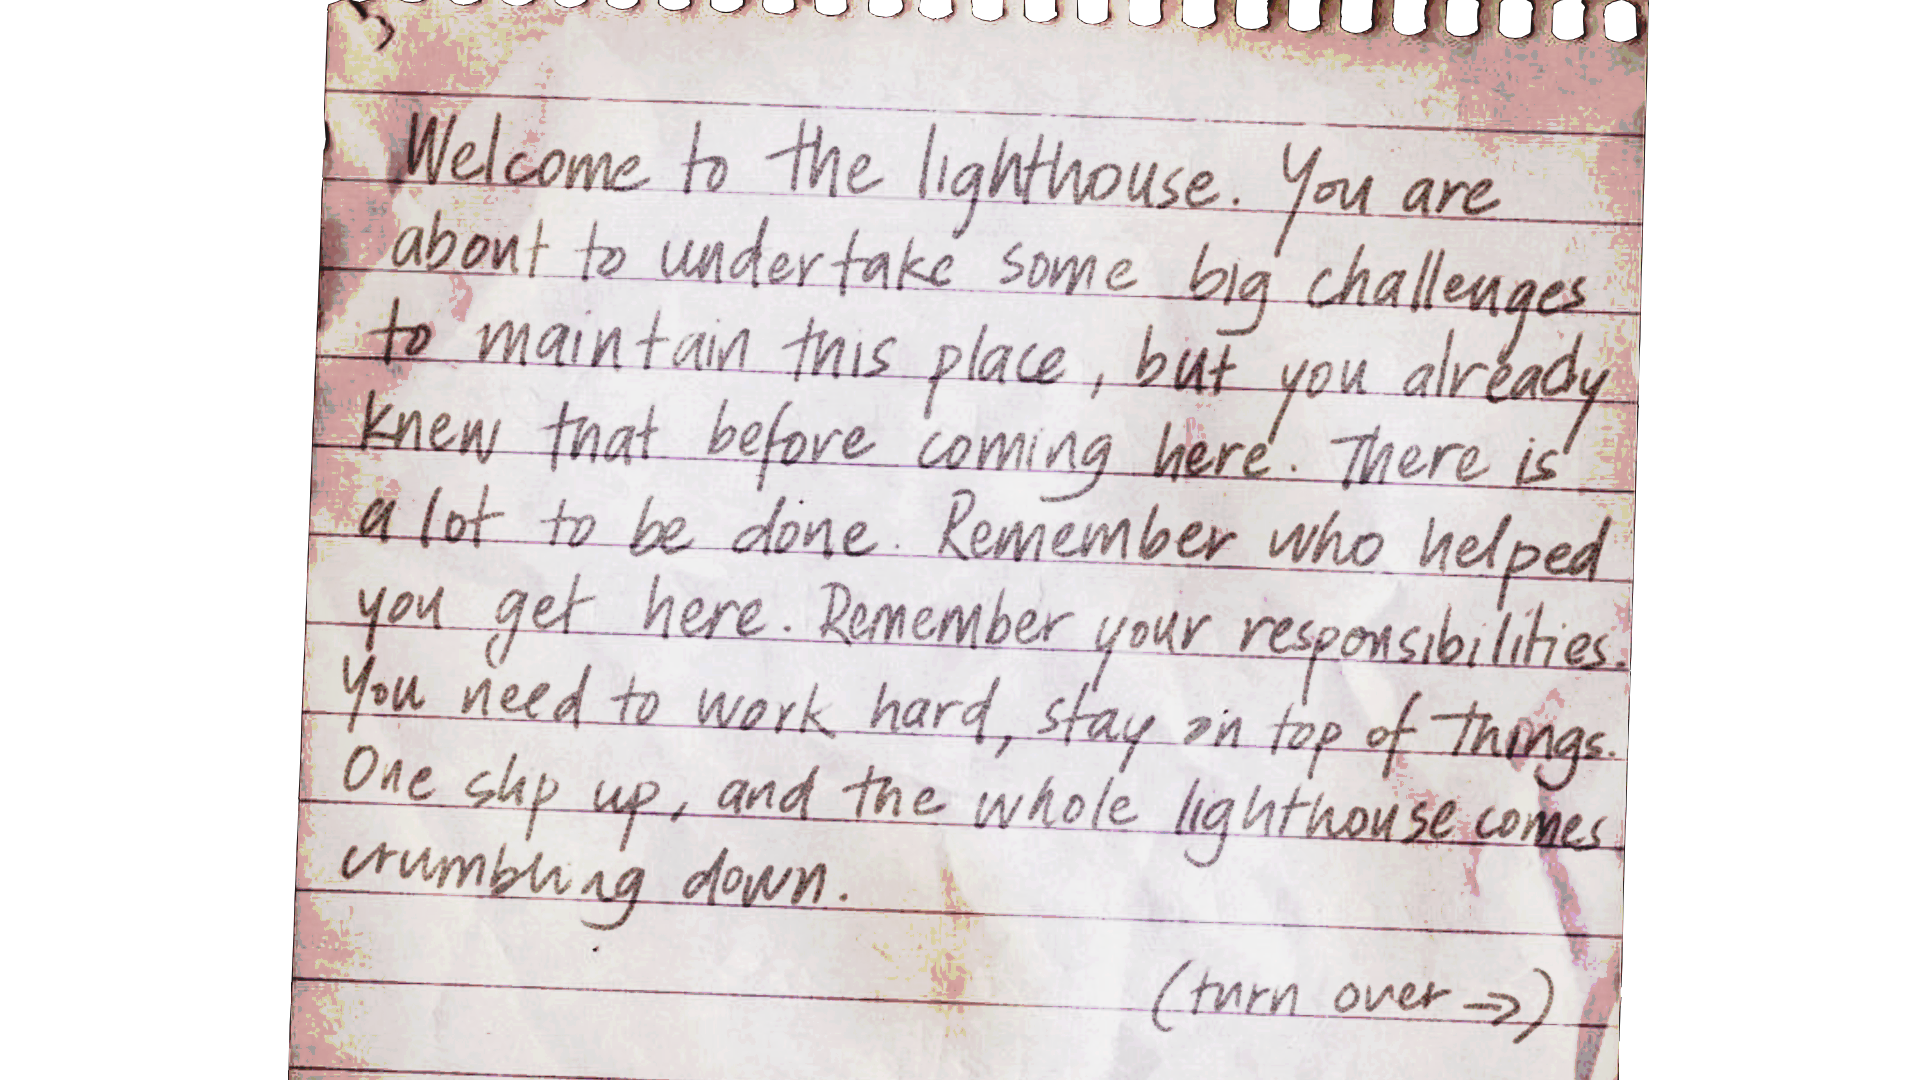 Welcome to the lighthouse. You are
about to undertake some big challenges
to maintain this place, but you already
knew that before coming here. There is
a lot to be done. Remember who helped
you get here. Remember your responsibilities.
You need to work hard, stay on top of things.
One slip up, and the whole lighthouse comes
crumbling down.
(turn over →)